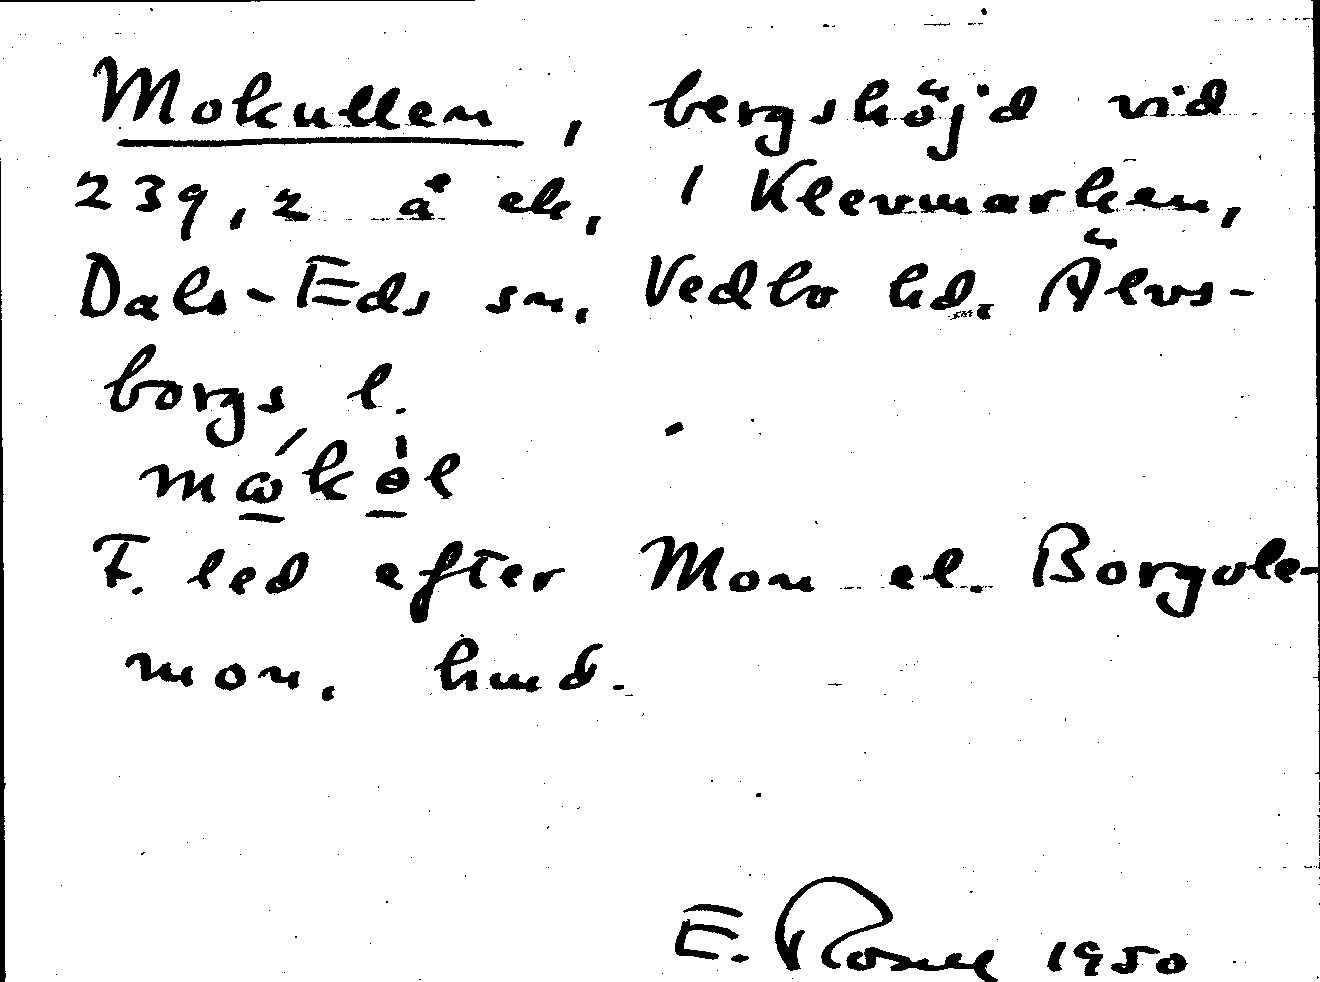 Mokullen, bergshöjd vid
239,2 å ek, 1 Klevmarken,
Dals-Eds sn, Vedbo hd. Älvs-
borgs l.
F. led efter Mon el. Borgole-
mon, hmd.
E. 1950